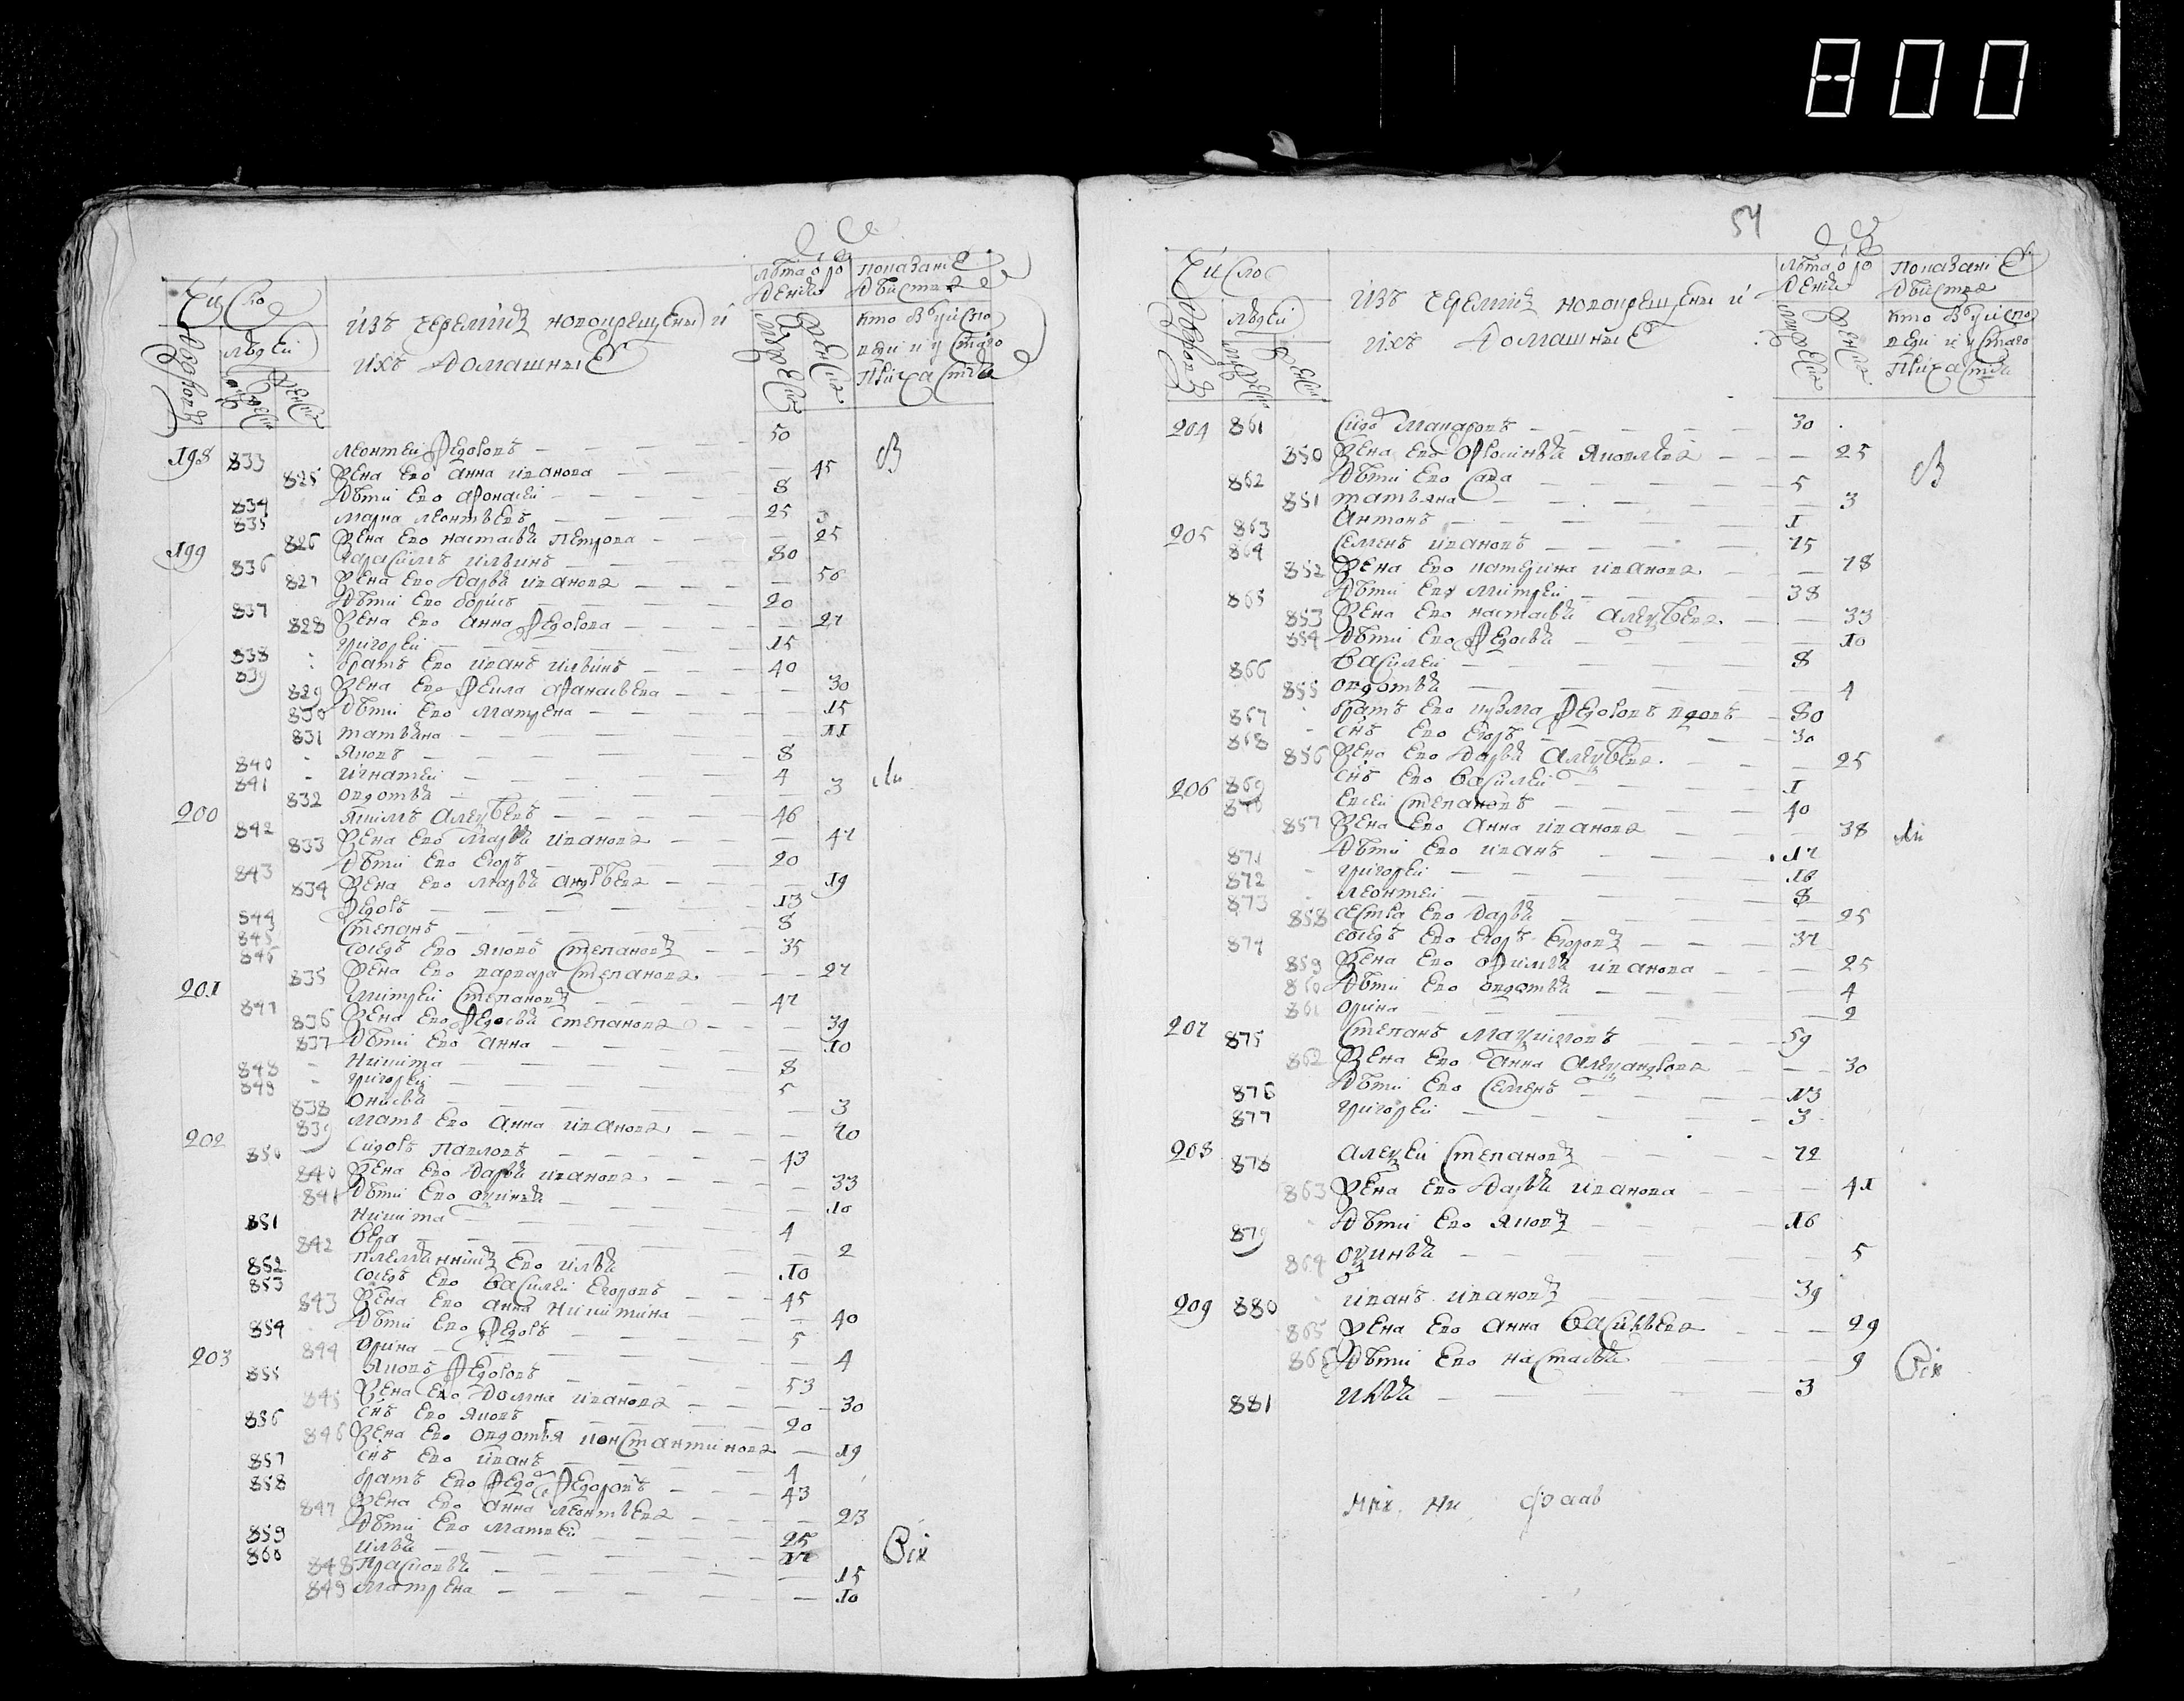 800
Число
Дворовъ
Людей
мужеска
женска
изъ черемисъ новокрещены и
ихъ домашные
лѣта о ро
ждени
мужеска
женска
показание
действа
кто былъ у испо
веди и у стаго
причастия
198 833 леонтеи Федоровъ 50
825 жена ево анна иванова 45
834 дѣти ево афонасеи 8
835 марка леонтьевъ 25
826 жена ево настасья петрова 25
199 836 карасимъ ильинъ 80
827 жена ево дарья иванова 56
837 дѣти ево борисъ 20
828 жена ево анна Федорова 27
838 григореи 15
839 братъ ево иванъ ильинъ 40
829 жена ево Фекла афанасьева 30
830 дѣти ево матрена 15
831 татьяна 11
840 яковъ 8
841 игнатеи 4
832 овдотья 3
200 842 якимъ алексѣевъ 46
833 жена ево марья иванова 47
843 дѣти ево егоръ 20
834 жена ево марья андрѣева 19
844 Федоръ 13
845 степанъ 8
846 соседъ ево яковъ степановъ 35
835 жена ево варвара степанова 27
201 847 дмитреи степановъ 47
836 жена ево Федосья степанова 39
837 дѣти ево анна 10
848 никита 8
849 григореи 5
838 онисья 3
839 мать ево анна иванова 70
202 850 сидоръ павловъ 43
840 жена ево дарья иванова 33
841 дѣти ево оксинья 10
851 никита 4
842 вера 2
852 племянникъ ево илья 10
853 соседъ ево василеи егоровъ 45
843 жена ево анна никитина 40
854 дѣти ево Федоръ 5
844 орина 4
203 855 яковъ Федоровъ 53
845 жена ево домна иванова 30
856 снъ ево яковъ 20
846 жена ево овдотья константинова 19
857 снъ ево иванъ 4
858 братъ ево Федоръ Федоровъ 43
847 жена ево анна леонтьева 23
859 дѣти ево матвеи 25
860 илья 17
848 прасковья 15
849 матрена 10
54
Число
Дворовъ
Людей
мужеска
женска
изъ черемисъ новокрещены и
ихъ домашные
лѣта о ро
ждени
мужеска
женска
показание
действа
кто былъ у испо
веди и у стаго
причастия
204 861 сидоръ макаровъ 30
850 жена ево Фросинья яковлева 25
862 дѣти ево сава 5
851 татьяна 3
863 антонъ 1
205 864 семенъ ивановъ 75
852 жена ево катерина иванова 78
865 дѣти ево митреи 38
853 жена ево настасья алексѣева 33
854 дѣти ево Федосья 10
866 василеи 8
855 овдотья 4
867 братъ ево кузма Федоровъ вдовъ 80
868 снъ ево егоръ 30
856 жена ево дарья алексѣева 25
869 снъ ево василеи 1
206 870 евсеи степановъ 40
857 жена ево анна иванова 38
871 дѣти ево иванъ 17
872 григореи 16
873 леонтеи 8
858 сестра ево дарья 25
874 соседъ ево егоръ егоровъ 37
859 жена ево офимья иванова 25
860 дѣти ево овдотья 4
861 орина 2
207 875 степанъ максимовъ 59
862 жена ево анна александрова 30
876 дѣти ево семенъ 13
877 григореи 3
208 878 алексеи степановъ 72
863 жена ево дарья иванова 41
879 дѣти ево яковъ 16
864 оксинья 5
209 880 иванъ ивановъ 39
865 жена ево анна васильева 29
866 дѣти ево настасья 9
881 илья 3